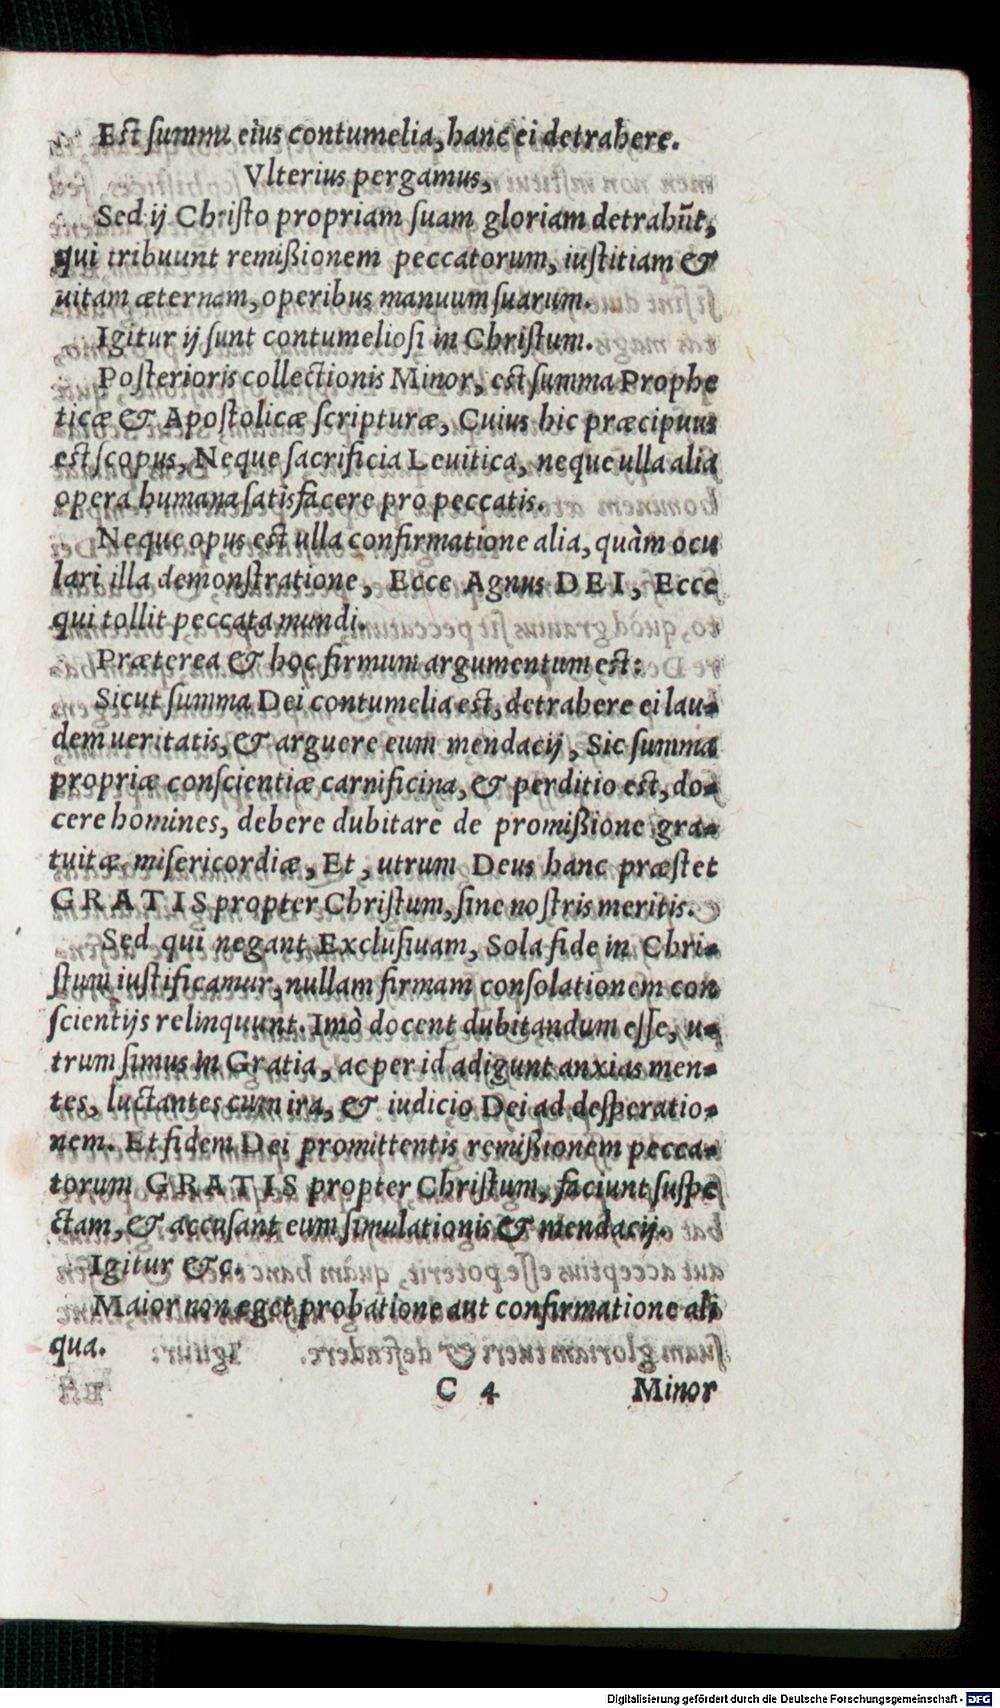 Est summa eius contumelia, hanc ei detrahere.
Vlterius pergamus,
Sed ij Christo propriam suam gloriam detrahūt,
qui tribuunt remißionem peccatorum, iustitiam &
uitam æternam, operibus manuum suarum.
Igitur ij sunt contumeliosi in Christum.
Posterioris collectionis Minor, est summa Prophe
ticæ & Apostolicæ scripturæ, Cuius hic præcipuus
est scopus, Neque sacrificia Leuitica, neque ulla alia
opera humana satisfacere pro peccatis.
Neque opus est ulla confirmatione alia, quàm ocu
lari illa demonstratione, Ecce Agnus DEI, Ecce
qui tollit peccata mundi.
Præterea & hoc firmum argumentum est:
Sicut summa Dei contumelia est, detrahere ei lau-
dem ueritatis, & arguere eum mendacij, Sic summa
propriæ conscientiæ carnificina, & perditio est, do-
cere homines, debere dubitare de promißione gra-
tuitæ misericordiæ, Et, utrum Deus hanc præstet
GRATIS propter Christum, sine nostris meritis.
Sed qui negant Exclusiuam, Sola fide in Chri-
stum iustificamur, nullam firmam consolationem con
scientijs relinquunt. Imò docent dubitandum esse, u-
trum simus in Gratia, ac per id adigunt anxias men-
tes, luctantes cum ira, & iudicio Dei ad desperatio-
nem. Et fidem Dei promittentis remißionem pecca-
torum GRATIS propter Christum, faciunt suspe
ctam, & accusant eum simulationis & mendacij.
Igitur &c.
Maior non eget probatione aut confirmatione ali
qua.
C 4 Minor
Digitalisierung gefördert durch die Deutsche Forschungsgemeinschaft - DFG